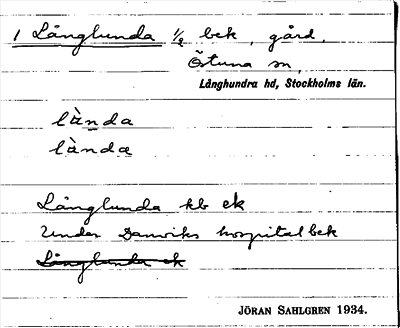 1 Långlunda ½ bek, gård.
Östuna sn,
Långhundra hd, Stockholms län.
lànda
lànda
Långlunda kb ek
Under Danviks hospital bek
Långlunda ek
JÖRAN SAHLGREN 1934.